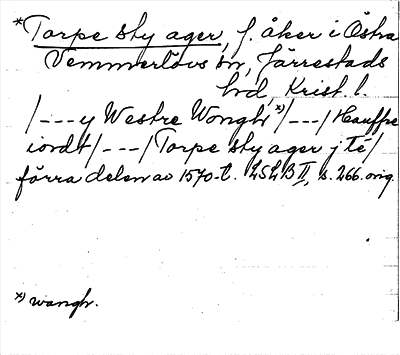 *Torpe sty ager, f. åker i Östra
Vemmerlövs sn, Järrestads
hd, Krist. l.
/---y Westre Wongh *)/---/ Hauffre
iordt/---/Torpe sty ager j té/
förra delen av 1570-t. LSLB II, s. 266. orig.
*) wangh.